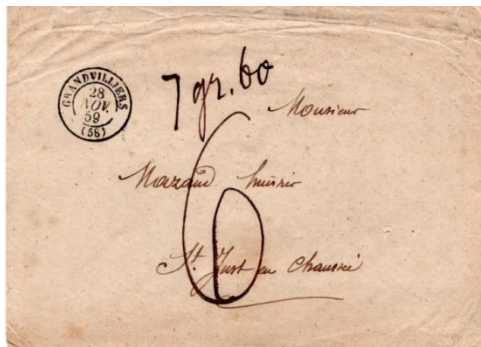 GRANDVILLIERS
28
NOV.
59
(58)
7 gr. 60
6
Monsieur
Mazand huissier
St Just en Chaussée